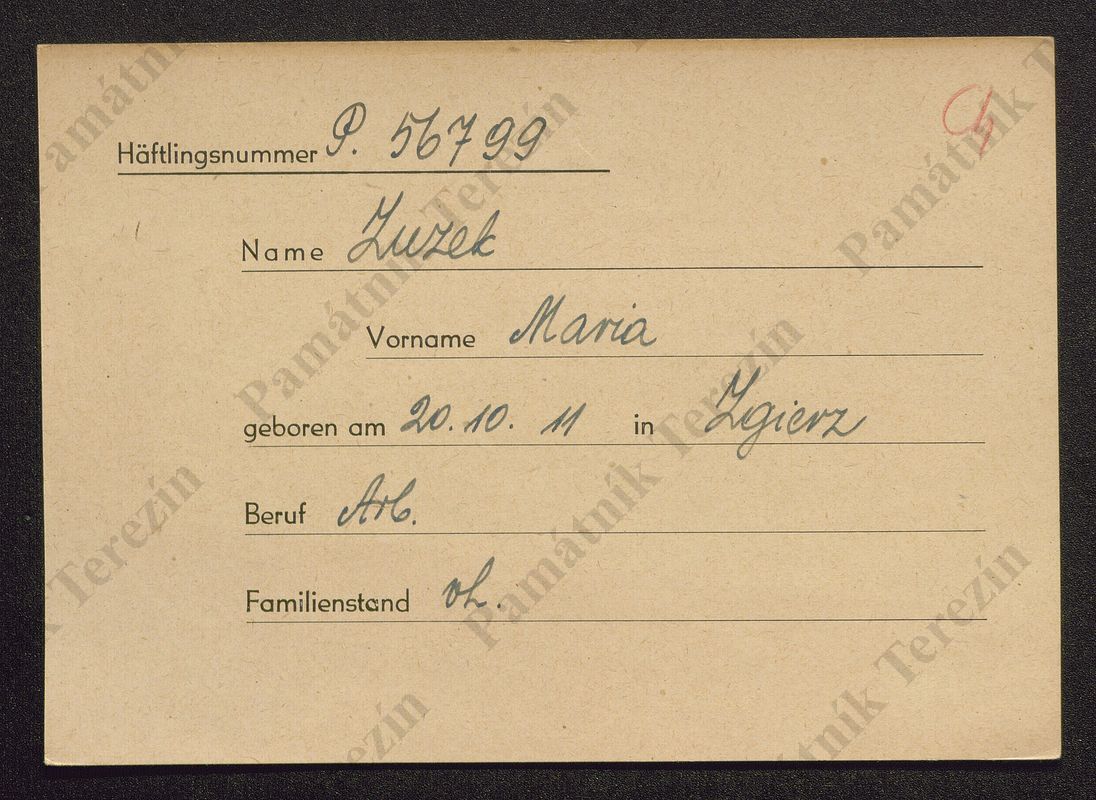 Häftlingsnummer P. 56799
Name Zuzek
Vorname Maria
geboren am 20. 10. 11 in Zgierz
Beruf Arb.
Familienstand vh.
Památník Terezín